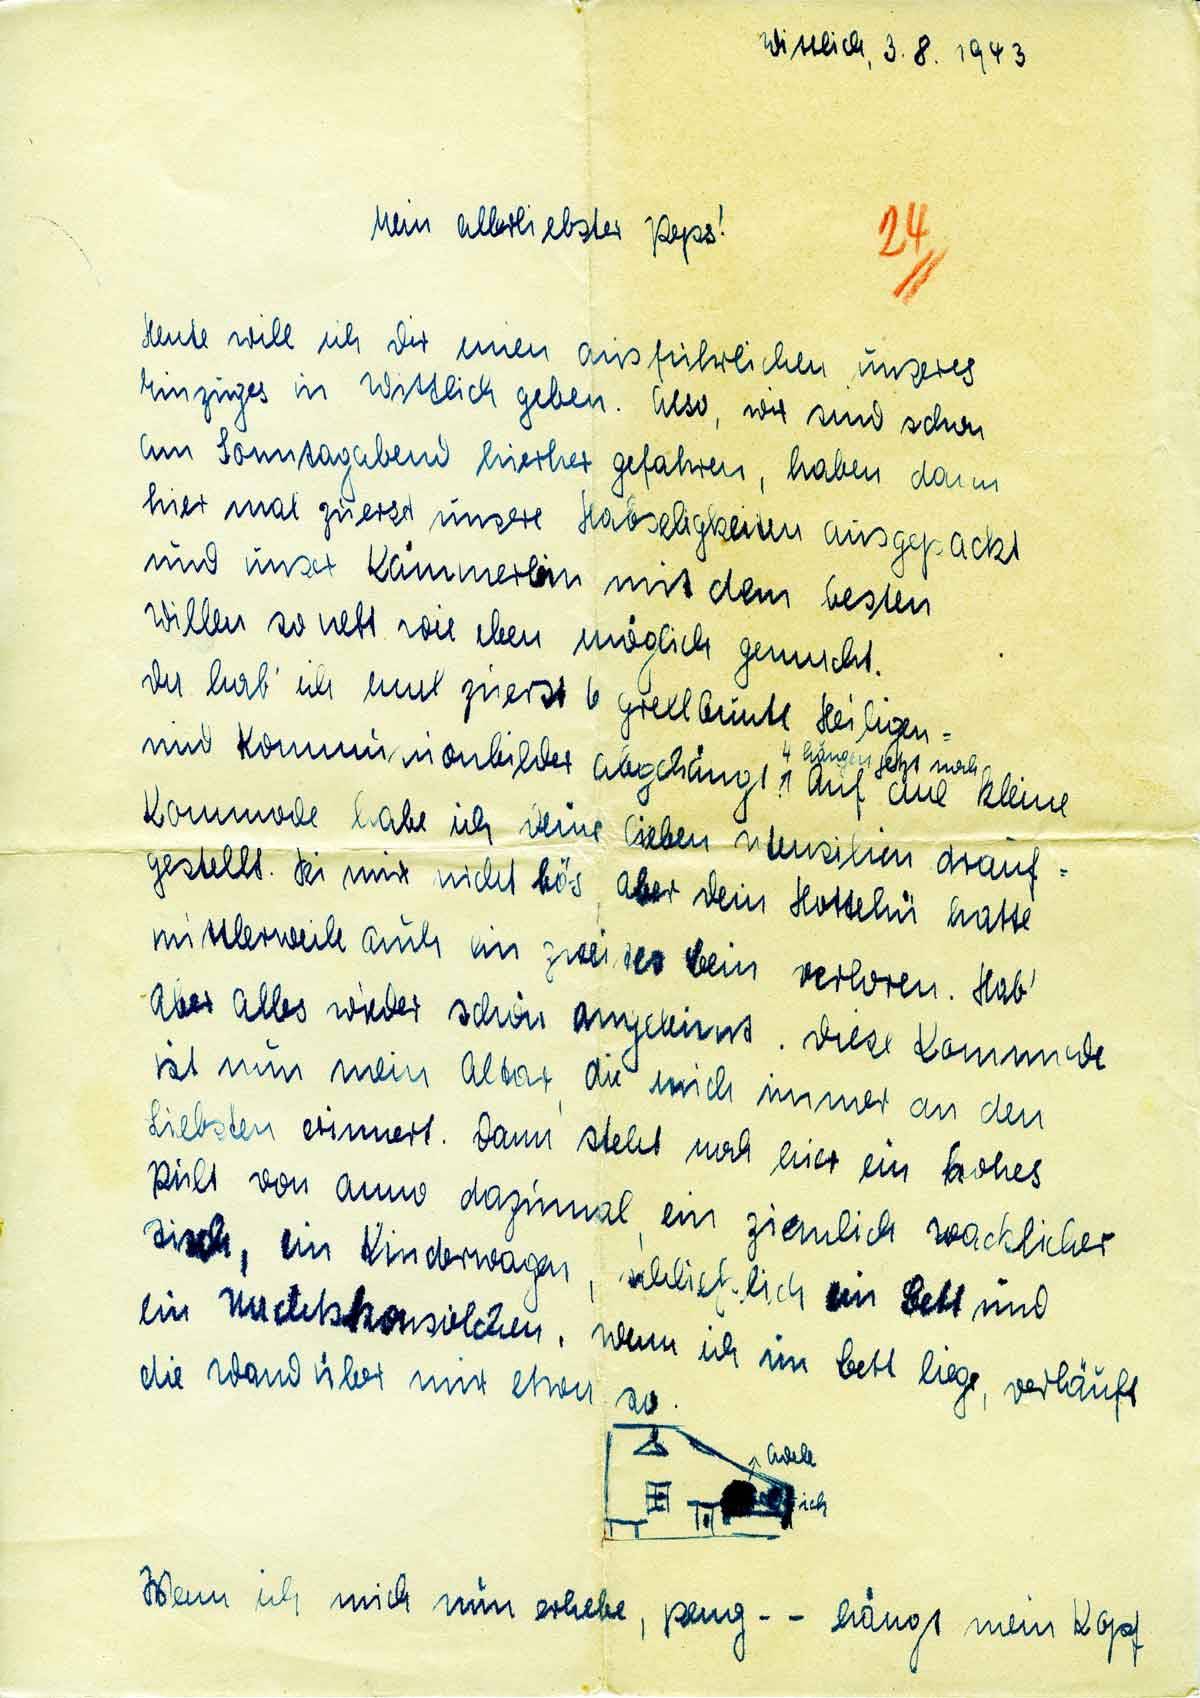 Wittlich, 3.8.1943
Mein allerliebster Peps!
24
Heute will ich Dir einen ausführlichen unseres
Einzuges in Wittlich geben. Also, wir sind schon
am Sonntagabend hierher gefahren, haben dann
hier mal zuerst unsere Habseligkeiten ausgepackt
und unser Kämmerlein mit dem besten
Willen so nett wie eben möglich gemacht.
Da hab' ich mal zuerst 6 grellbunte Heiligen=
und Kommunionbilder abgehängt. Auf eine kleine
4 hängen jetzt noch
Kommode habe ich Deine lieben Utensilien drauf=
gestellt. Sei mir nicht bös, aber Dein Hottehü hatte
mittlerweile auch ein zweites Bein verloren. Hab'
aber alles wieder schön angeleimt. Diese Kommode
ist nun mein Altar, die mich immer an den
Liebsten erinnert. Dann steht noch hier ein hohes
Pult von anno dazumal, ein ziemlich wacklicher
Tisch, ein Kinderwagen, schließlich ein Bett und
ein Nachtskonsölchen. Wenn ich im Bett liege, verläuft
die Wand über mir etwa so.
ich
Wenn ich mich nun erhebe, peng -- hängt mein Kopf